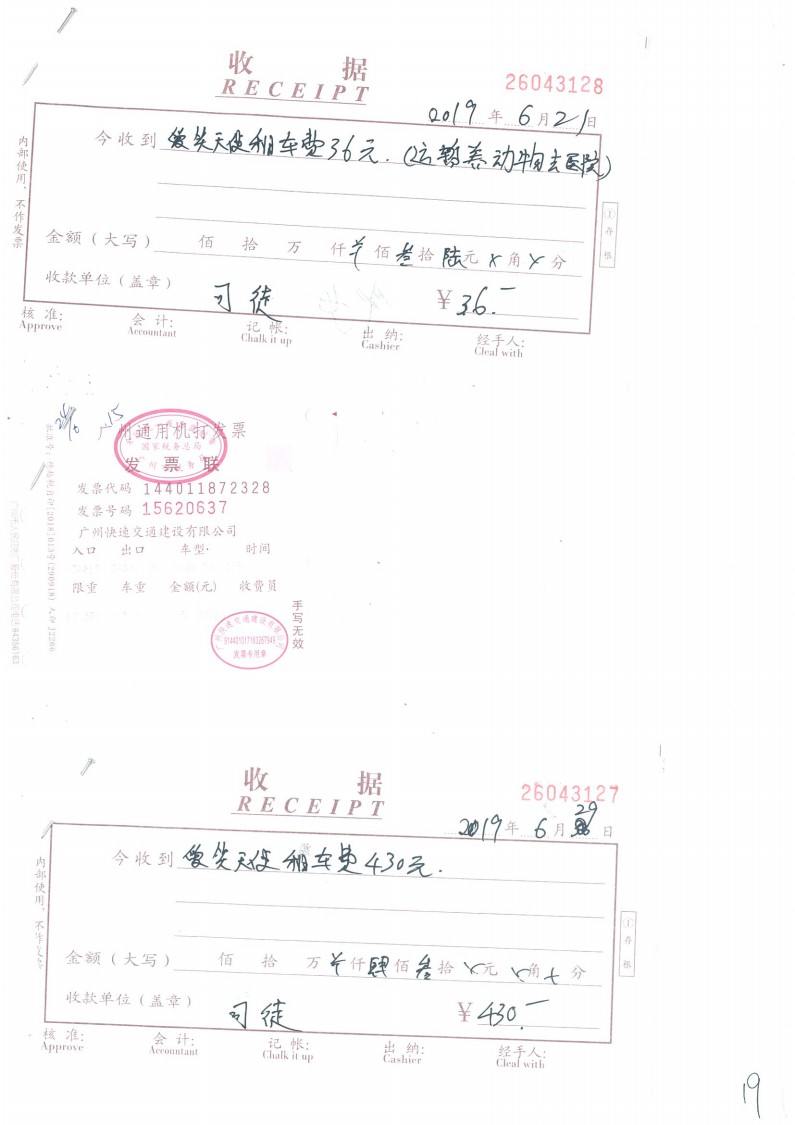 收 据
RECEIPT
26043128
2019 年 6 月 21 日
今收到 天使租车费36元.
内部使用,不作发票
①存根
金额(大写) 佰 拾 万 仟 ¥ 佰 叁 拾 陆 元 × 角 × 分
收款单位(盖章) 司徒 ¥ 36.-
核 准: 会 计: 记 帐: 出 纳: 经手人:
Approve Accountant Chalk it up Cashier Cleal with
15
广州通用机打发票
国家税务总局
发 票 联
发票代码 144011872328
发票号码 15620637
广州快速交通建设有限公司
入口 出口 车型· 时间
限重 车重 金额(元) 收费员
手写无效
广州快速交通建设有限公司
发票专用章
收 据
RECEIPT
26043127
2019 年 6 月 29 日
今收到 天使 租车费430元.
内部使用,不作发票
①存根
金额(大写) 佰 拾 万 ¥ 仟 肆 佰 叁 拾 × 元 × 角 × 分
收款单位(盖章) 司徒 ¥ 430.-
核 准: 会 计: 记 帐: 出 纳: 经手人:
Approve Accountant Chalk it up Cashier Cleal with
19